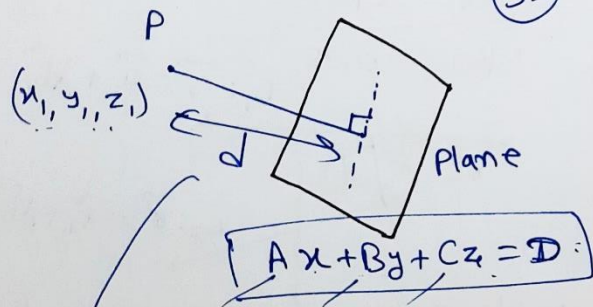 P
(x₁, y₁, z₁)
d
Plane
Ax + By + Cz = D